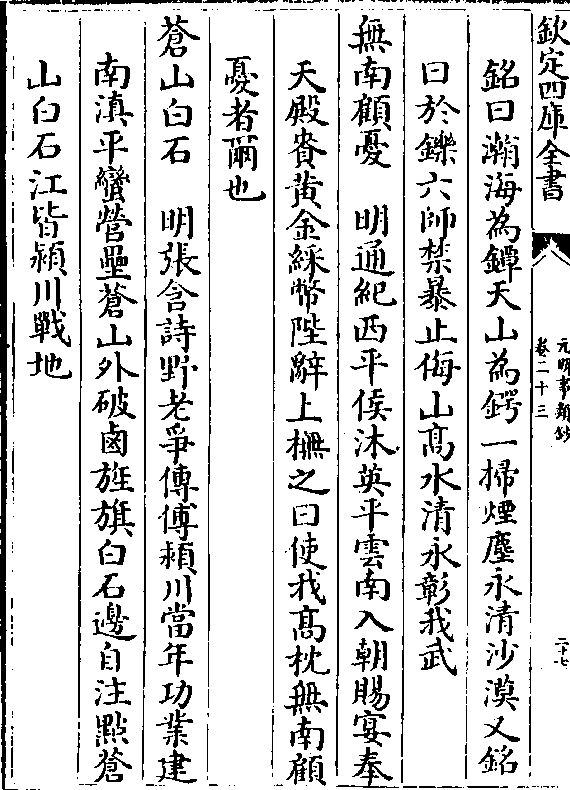 欽定四庫全書
元明事類鈔
卷二十三
二十七
銘曰瀚海為鐔天山為鍔一掃煙塵永清沙漠又銘
曰於鑠六師禁暴止侮山髙水清永彰我武
無南顧憂　明通紀西平侯沐英平雲南入朝賜宴奉
天殿賚黄金綵幣陛辭上撫之曰使我髙枕無南顧
憂者爾也
蒼山白石　明張含詩野老爭傳傅潁川當年功業建
南滇平蠻營壘蒼山外破鹵旌旗白石邊自注㸃蒼
山白石江皆潁川戰地